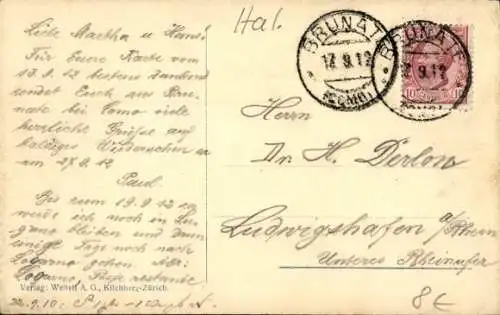 Hal.
BRUNATE
17.9.12
(COMO)
BRUNATE
17.9.12
(COMO)
10 10
Liebe Martha u Hans!
Für Eure Karte vom
13.9.12 bestens dankend
sendet Euch aus Bru-
nate bei Como viele
herzliche Grüße auf
baldiges Wiedersehen
am 27.9.12
Paul.
Bis zum 19.9.12
werde ich noch in Lu-
gano bleiben und dann
einige Tage noch nach
Locarno gehen
Locarno, Poste restante
Verlag: Wehrli A. G., Kilchberg-Zürich.
Herrn
Dr. H. Derlon
Ludwigshafen a/Rhein
Unteres Rheinufer
8€